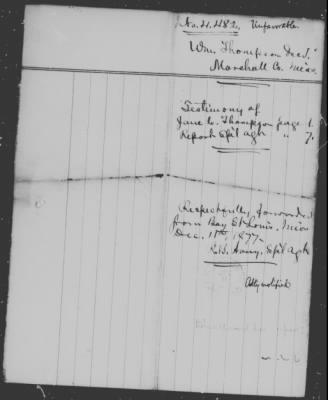 No. 4.482. Unfavorable.
Wm. Thompson Decd.
Marshall Co. Miss.
Testimony of
Jane C. Thompson page 1.
Report Spl agt " 7.
Respectfully forwarded
from Bay St Louis, Miss
Dec. 11th, 1877.
Spl agt
Atty notified